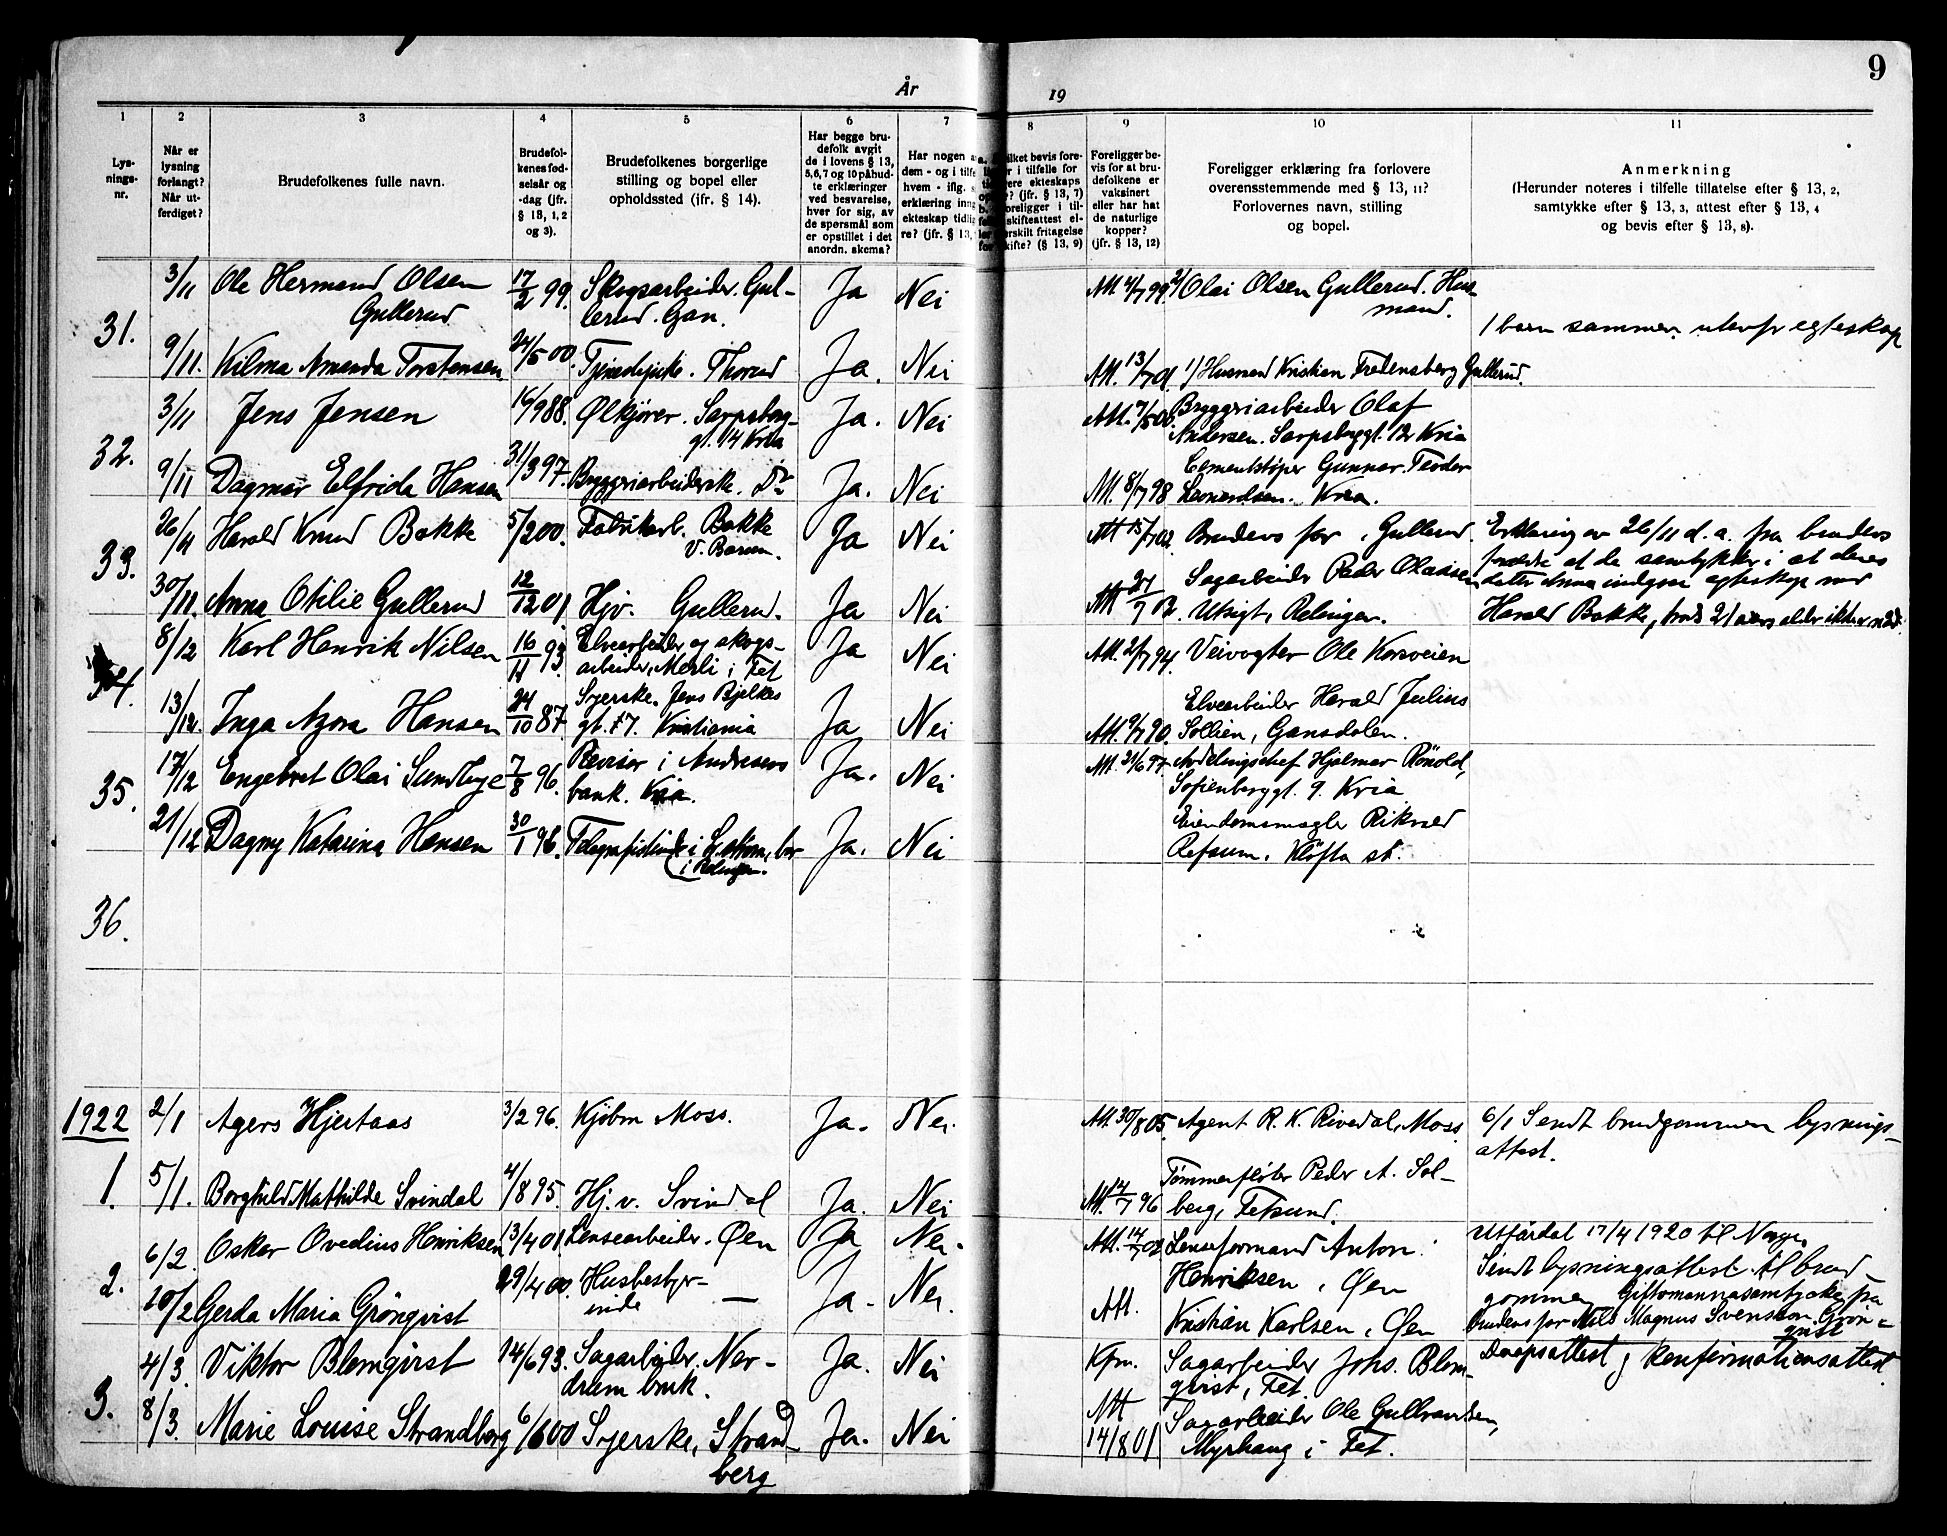 År 19
9
1 2 3 4 5 6 7 8 9 10 11
Lys-
nings-
nr.
Når er
lysning
forlangt?
Når ut-
ferdiget?
Brudefolkenes fulle navn.
Brudefol-
kenes fød-
selsår og
-dag (jfr.
§ 13, 1, 2
og 3).
Brudefolkenes borgerlige
stilling og bopel eller
opholdssted (jfr. § 14).
Har begge bru-
defolk avgit
de i lovens § 13,
5,6,7 og 10 påbud-
te erklæringer
ved besvarelse,
hver for sig, av
de spørsmål som
er opstillet i det
anordn. skema?
Har nogen a
dem - og i tilfe
hvem - iflg.
erklæring inng
ekteskap tidlig
re? (jfr. § 13,
ilket bevis fore-
r i tilfelle for
ere ekteskaps
? (jfr. § 13, 7)
oreligger i til-
skifteattest el-
ærskilt fritagelse
kifte? (§ 13, 9)
Foreligger be-
vis for at bru-
defolkene er
vaksinert
eller har hat
de naturlige
kopper?
(jfr. § 13, 12)
Foreligger erklæring fra forlovere
overensstemmende med § 13, 11?
Forlovernes navn, stilling
og bopel.
Anmerkning
(Herunder noteres i tilfelle tillatelse efter § 13, 2,
samtykke efter § 13, 3, attest efter § 13, 4
og bevis efter § 13, 8).
31.
3/11 Ole Hermand Olsen 17/2 99. Skogsarbeider. Gul- Ja Nei Att. 4/7 99. 2/ Olai Olsen Gullerud. Hus-
Gullerud lerud. Gan. mand.
1 barn sammen utenfr egteskap
9/11. Kilma Amanda Torstensen 24/5 00. Tjenestepike. Thorud Ja. Nei Att. 13/7 01. 1/ Husmand Kristian Fredensberg Gullerud.
32.
3/11 Jens Jensen 16/9 88. Ølkjører. Sarpsborg- Ja. Nei Att. 7/5 00. Bryggeriarbeider Olaf
gt. 14 Kria Andersen. Sarpsborggt. 12 Kria
9/11 Dagmar Elfrida Hansen 31/3 97. Bryggeriarbeiderske. Do Ja. Nei Att. 8/7 98 Cementstøper Gunnar Teodor
Leonardsen. Kria.
33.
26/11 Harald Knud Bakke 5/2 00. Fabrikarb. Bakke Ja Nei Att 15/7 02. Brudens far, Gullerud. Erklæring av 26/11 d. a. fra brudens
V. Bærum. forældre at de samtykker i at deres
30/11. Anna Otilie Gullerud 12/12 01 Hjv. Gullerud. Ja Nei Att 27/7 02. Sagarbeider Peder Olaussen datter Anna indgaar egteskap med
Utsigt, Rælingen. Harald Bakke, trods 21 aars alder ikke er naad.
34.
8/12 Karl Henrik Nilsen 16/11 93. Elvearbeider og skogs- Ja Nei Att. 2/7 94. Veivogter Ole Korsveien
arbeider, Merli i Fet
13/12. Inga Azora Hansen 24/10 87. Syerske. Jens Bjelkes Ja Nei Att. 9/7 90. Elvearbeider Harald Julius
gt. 17. Kristiania Sollien, Gansdalen.
35.
17/12 Engebret Olai Sundbye 7/8 96. Revisor i Andresens Ja. Nei Att. 21/6 97. Avdelingschef Hjalmar Rönold,
bank. Kria. Sofienberggt. 9. Kria
21/12 Dagny Katarina Hansen 30/1 96. Telegrafistinde i L.strøm, bor Ja. Nei Eiendomsmægler Rikard
i Rælingen. Refsum. Kløfta st.
36.
1922
1.
2/1 Agers Hjertaas 3/2 96. Kjøbm Moss. Ja. Nei. Att. 30/8 05. Agent R. K. Rivedal, Moss. 6/1 Sendt brudgommen lysnings-
attest.
5/1. Borghild Mathilde Svindal 4/8 95. Hj. v. Svindal Ja. Nei Att. 14/7 96 Tømmerfløter Peder A. Sol-
berg, Fetsund.
2.
6/2. Oskar Ovedius Henriksen 13/4 01 Lensearbeider. Øen Ja Nei. Att. 14/7 02 Lenseformand Anton Utfärdat 17/4 1920 til Norge.
Henriksen, Øen Sendt lysningsattest til brud-
10/2 Gerda Maria Grönqvist 29/4 00. Husbesty- Ja. Nei. Att. Kristian Karlsen, Øen gommen Giftomannasamtycke fra
rinde — brudens far Nils Magnus Svensson Grön-
qvist
3.
4/3. Viktor Blomqvist 14/6 93. Sagarbeider. Ner- Ja. Nei Kfm. Sagarbeider Johs. Blom- Daapsattest, konfirmationsattest
drum bruk. qvist, Fet.
8/3. Marie Louise Strandberg 6/6 00 Syerske, Strand- Ja. Nei Att 14/8 01 Sagarbeider Ole Gulbrandsen,
berg Myrhaug i Fet.